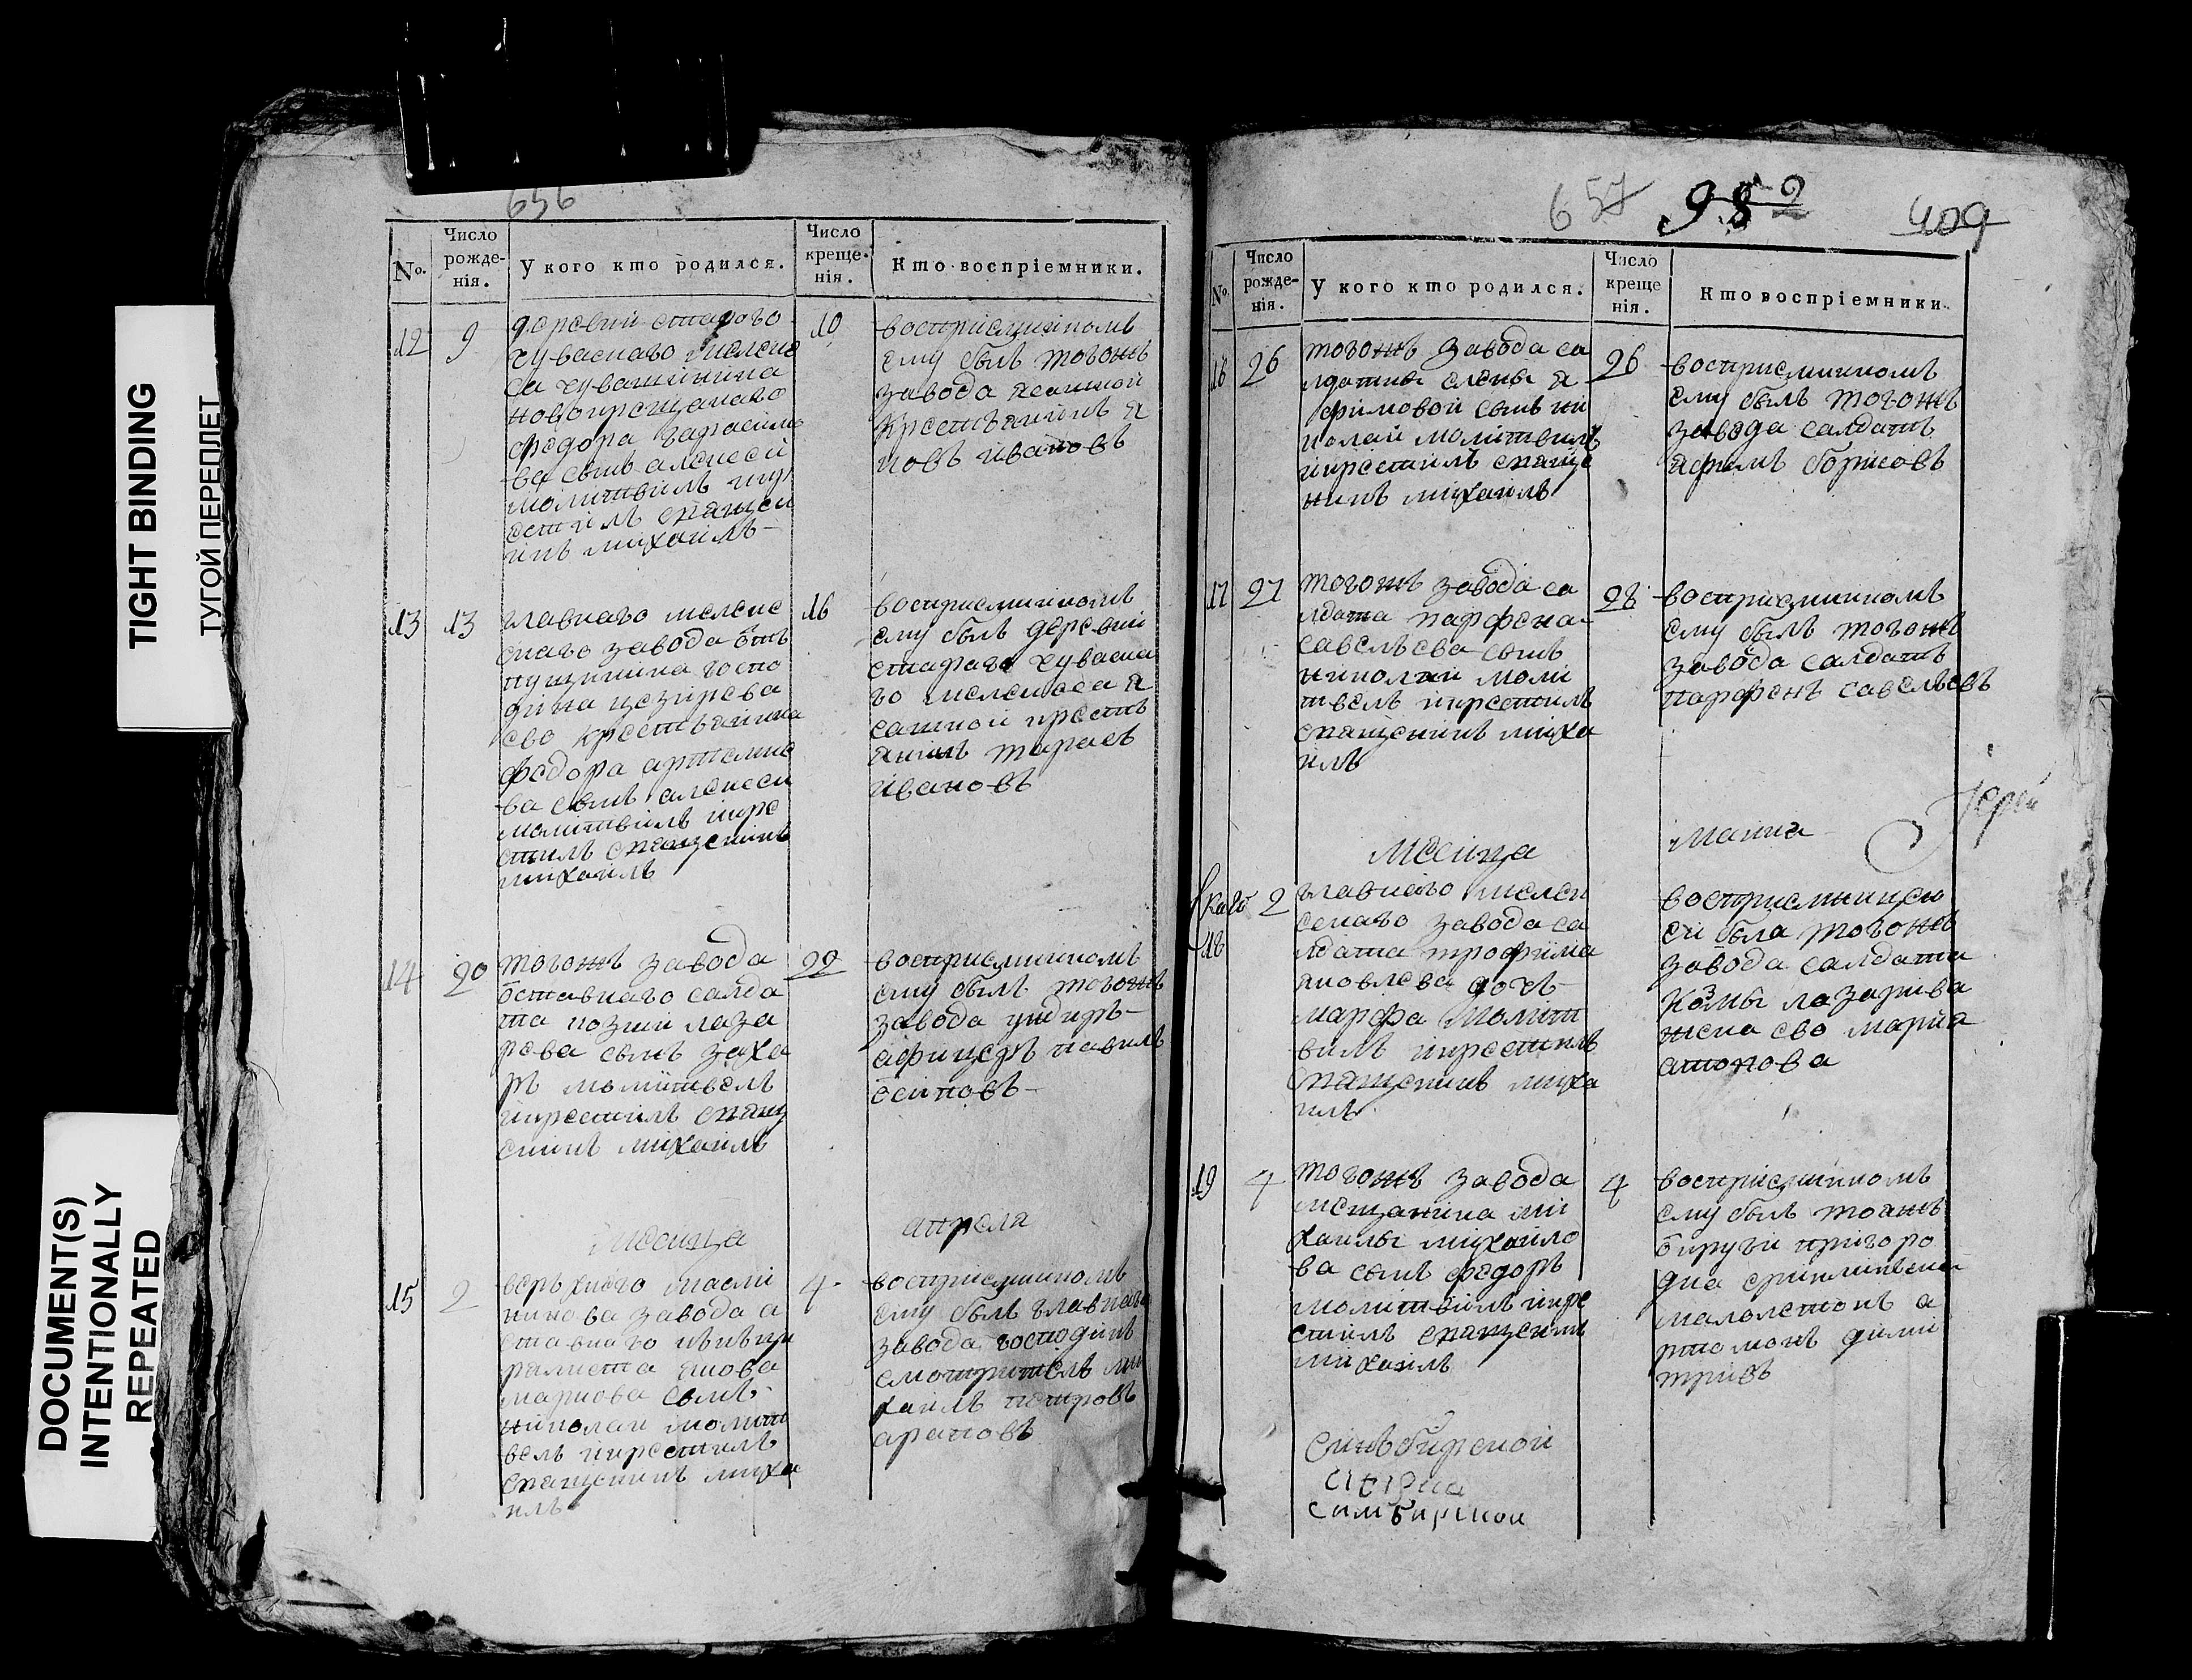 TIGHT BINDING
ТУГОЙ ПЕРЕПЛЕТ
DOCUMENT(S)
INTENTIONALLY
REPEATED
656
No.
Число рожде-нія.
У кого кто родился.
Число креще-нія.
Кто воспріемники.
12 9
деревни старого
чуваскаго мелеке
са чувашинина
новокрещенаго
федора гарасимо
ва сынъ алексей
молитвилъ икр
естилъ священ
икъ михаилъ
10
восприемникомъ
ему былъ тогожъ
завода ясашной
крестьянинъ я
ковъ ивановъ
13 13
главнаго мелекес
скаго завода отъ
пущинина госпо
дина
ево крестьянина
федора артемие
ва сынъ алексей
молитвилъ икре
стилъ священикъ
михаилъ
16
восприемникомъ
ему былъ деревни
стараго чуваска
го мелекесса я
сашной кресть
янинъ тарасъ
ивановъ
14 20
тогожъ завода
отставнаго салда
та козми лаза
рева сынъ заха
ръ молитвелъ
икрестилъ свящ
еникъ михаилъ
22
восприемникомъ
ему былъ тогожъ
завода ундиръ
афицеръ павилъ
осиповъ
месица апреля
15 2
верхнего
завода а
ставнаго
якова
маркова сынъ
николай молит
велъ икрестилъ
священикъ миха
илъ
4
восприемникомъ
ему былъ главнаго
завода господинъ
смотритель ми
хаилъ петровъ
араповъ
657 982 409
No.
Число рожде-нія.
У кого кто родился.
Число креще нія.
Кто воспріемники.
16 26
тогожъ завода са
лдатки елены я
фимовой сынъ ни
колай молитвилъ
икрестилъ свяще
никъ михаилъ
26
восприемникомъ
ему былъ тогожъ
завода салдатъ
яфимъ борисовъ
17 27
тогожъ завода са
лдата парфена
савельева сынъ
николай моли
твелъ икрестилъ
священикъ миха
илъ
28
восприемникомъ
ему былъ тогожъ
завода салдатъ
парфенъ савельевъ
Іерей
месица маия
18 2
главнаго мелеки
скаго завода са
лдата трофима
яковлева дочь
марфа молит
вилъ икрестилъ
священикъ миха
илъ
восприемницею
ей была тогожъ
завода салдата
козмы лазарива
жена ево мария
19 4
тогожъ завода
мещанина ми
хаилы михаило
ва сынъ федоръ
молитвилъ икре
стилъ священикъ
михаилъ
4
восприемникомъ
ему былъ тоежъ
округи пригоро
дка
малолетокъ а
ртомонъ дими
тривъ
Синьбирской
Симбирской